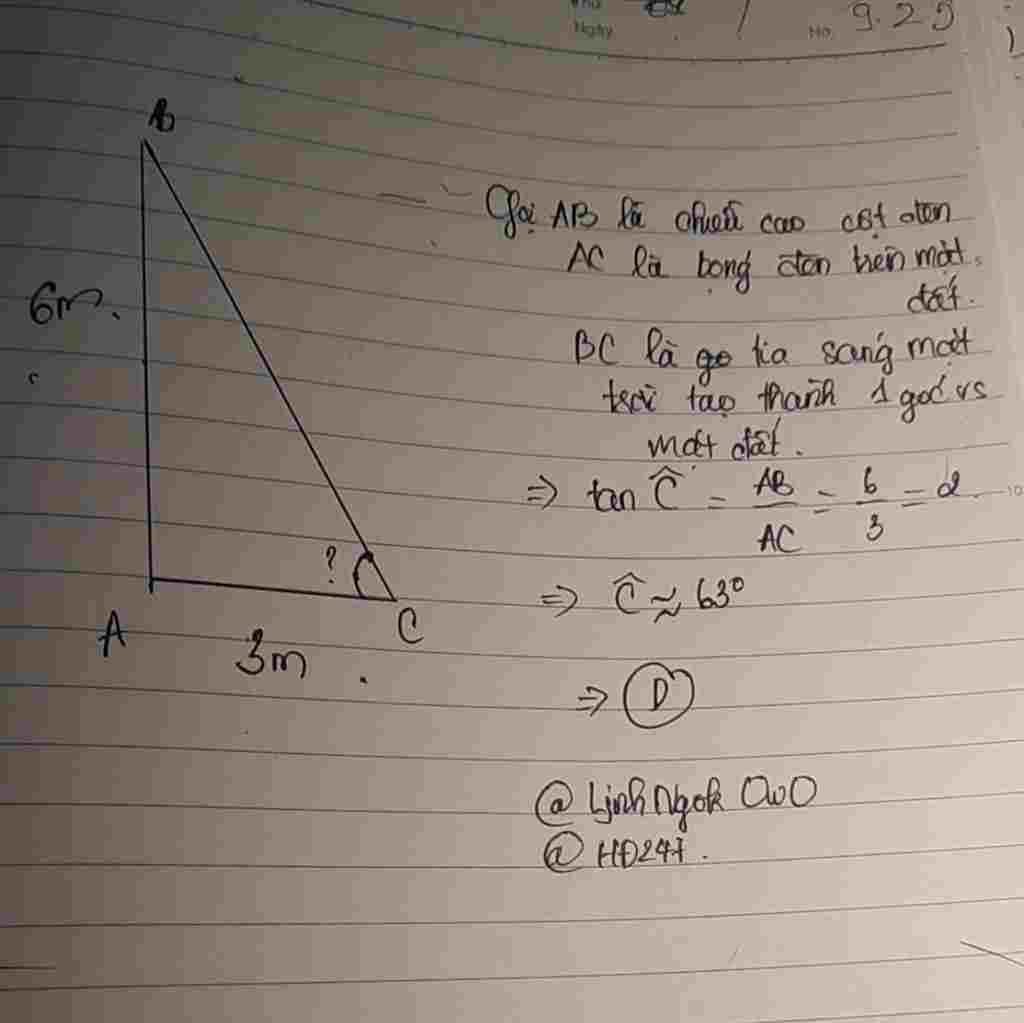 Ngày
No. 9.29
B
Gọi AB là chiều cao cột đèn
AC là bóng đèn trên mặt
đất.
6m.
BC là góc tia sáng mặt
trời tạo thành 1 góc vs
mặt đất.
=> tan Ĉ = AB/AC = 6/3 = 2
?
=> Ĉ ≈ 63°
A
C
3m
=> D
@ LjnhNgok OwO
@ HĐ247.